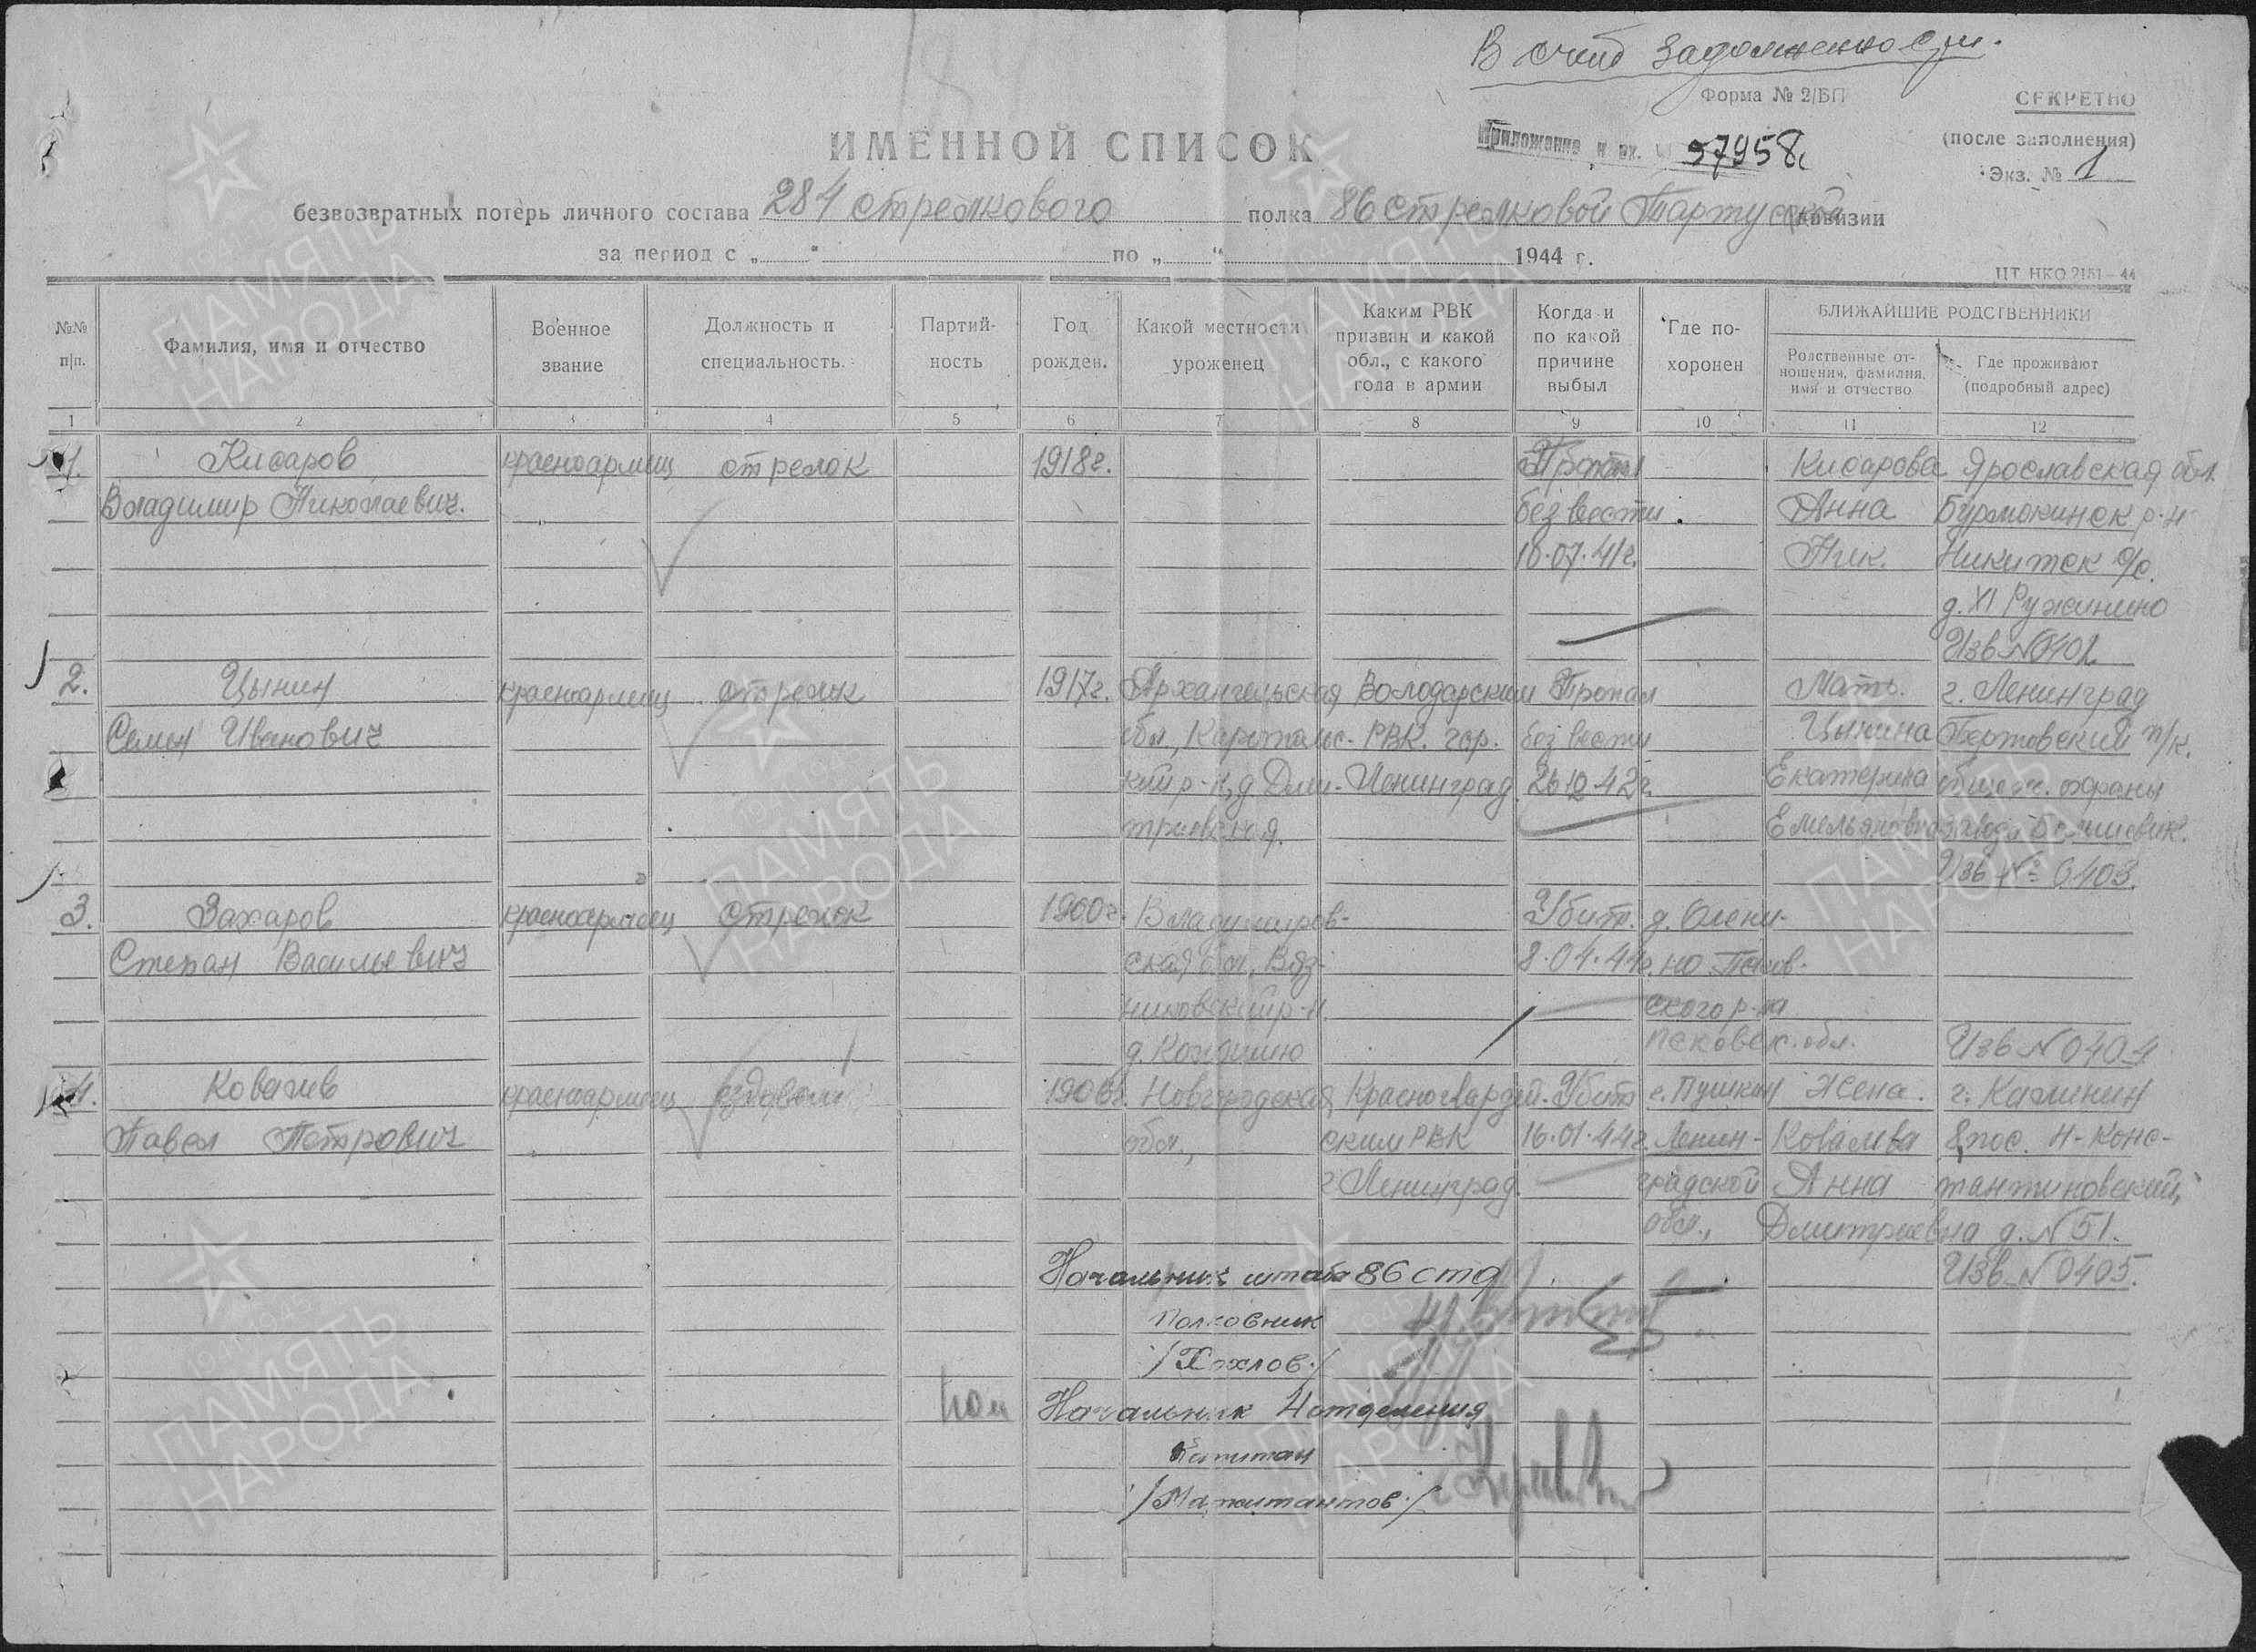 В счет задолженности.
Форма № 2/БП
СЕКРЕТНО
(после заполнения)
Экз. № 1
Приложение к вх. 57958с
ИМЕННОЙ СПИСОК
безвозвратных потерь личного состава 284 стрелкового полка 86 стрелковой Тартуской дивизии
за период с „ “ по „ “ 1944 г.
ЦТ НКО 2151—44
№№ п/п.
Фамилия, имя и отчество
Военное звание
Должность и специальность
Партийность
Год рожден.
Какой местности уроженец
Каким РВК призван и какой обл., с какого года в армии
Когда и по какой причине выбыл
Где похоронен
БЛИЖАЙШИЕ РОДСТВЕННИКИ
Родственные отношения, фамилия, имя и отчество
Где проживают (подробный адрес)
1 2 3 4 5 6 7 8 9 10 11 12
1. Кисаров красноармеец стрелок 1918г. Пропал Кисарова Ярославская обл.
Владимир Николаевич. без вести Анна Бурмакинск р-н
10.07.41г. Ник. Никитск с/с.
д. XI Ружинино
Изв N 0402
2. Цынин красноармеец стрелок 1917г. Архангельская Володарским Пропал Мать. г. Ленинград
Семен Иванович обл, Каргопольс- РВК. гор. без вести Цынина п/к.
кий р-н, д Дми- Ленинград 26 12 42г. Екатерина охраны
триевская. Емельяновна завода Большевик.
Изв № 0403.
3. Захаров красноармеец стрелок 1900г. Владимиров- Убит. д. Олени-
Степан Васильевич ская обл, Вяз- 8.04.44г. но Псков-
никовский р-н ского р-на
д. псковск. обл. Изв N 0404
4. Ковалев красноармеец ездовой Новгородская Красногвардей- Убит г. Пушкин Жена. г. Калинин
Павел Петрович обл., ским РВК 16.01.44г. Ленин- Ковалева пос. Н-Конс-
г Ленинград градской Анна тантиновский,
обл., Дмитриевна д. N 51.
Начальник штаба 86 стд Изв N 0405.
Полковник
/Хохлов./
пом Начальник 4 отделения
Капитан
ПАМЯТЬ НАРОДА
ПАМЯТЬ НАРОДА
ПАМЯТЬ НАРОДА
ПАМЯТЬ НАРОДА
ПАМЯТЬ НАРОДА
ПАМЯТЬ НАРОДА